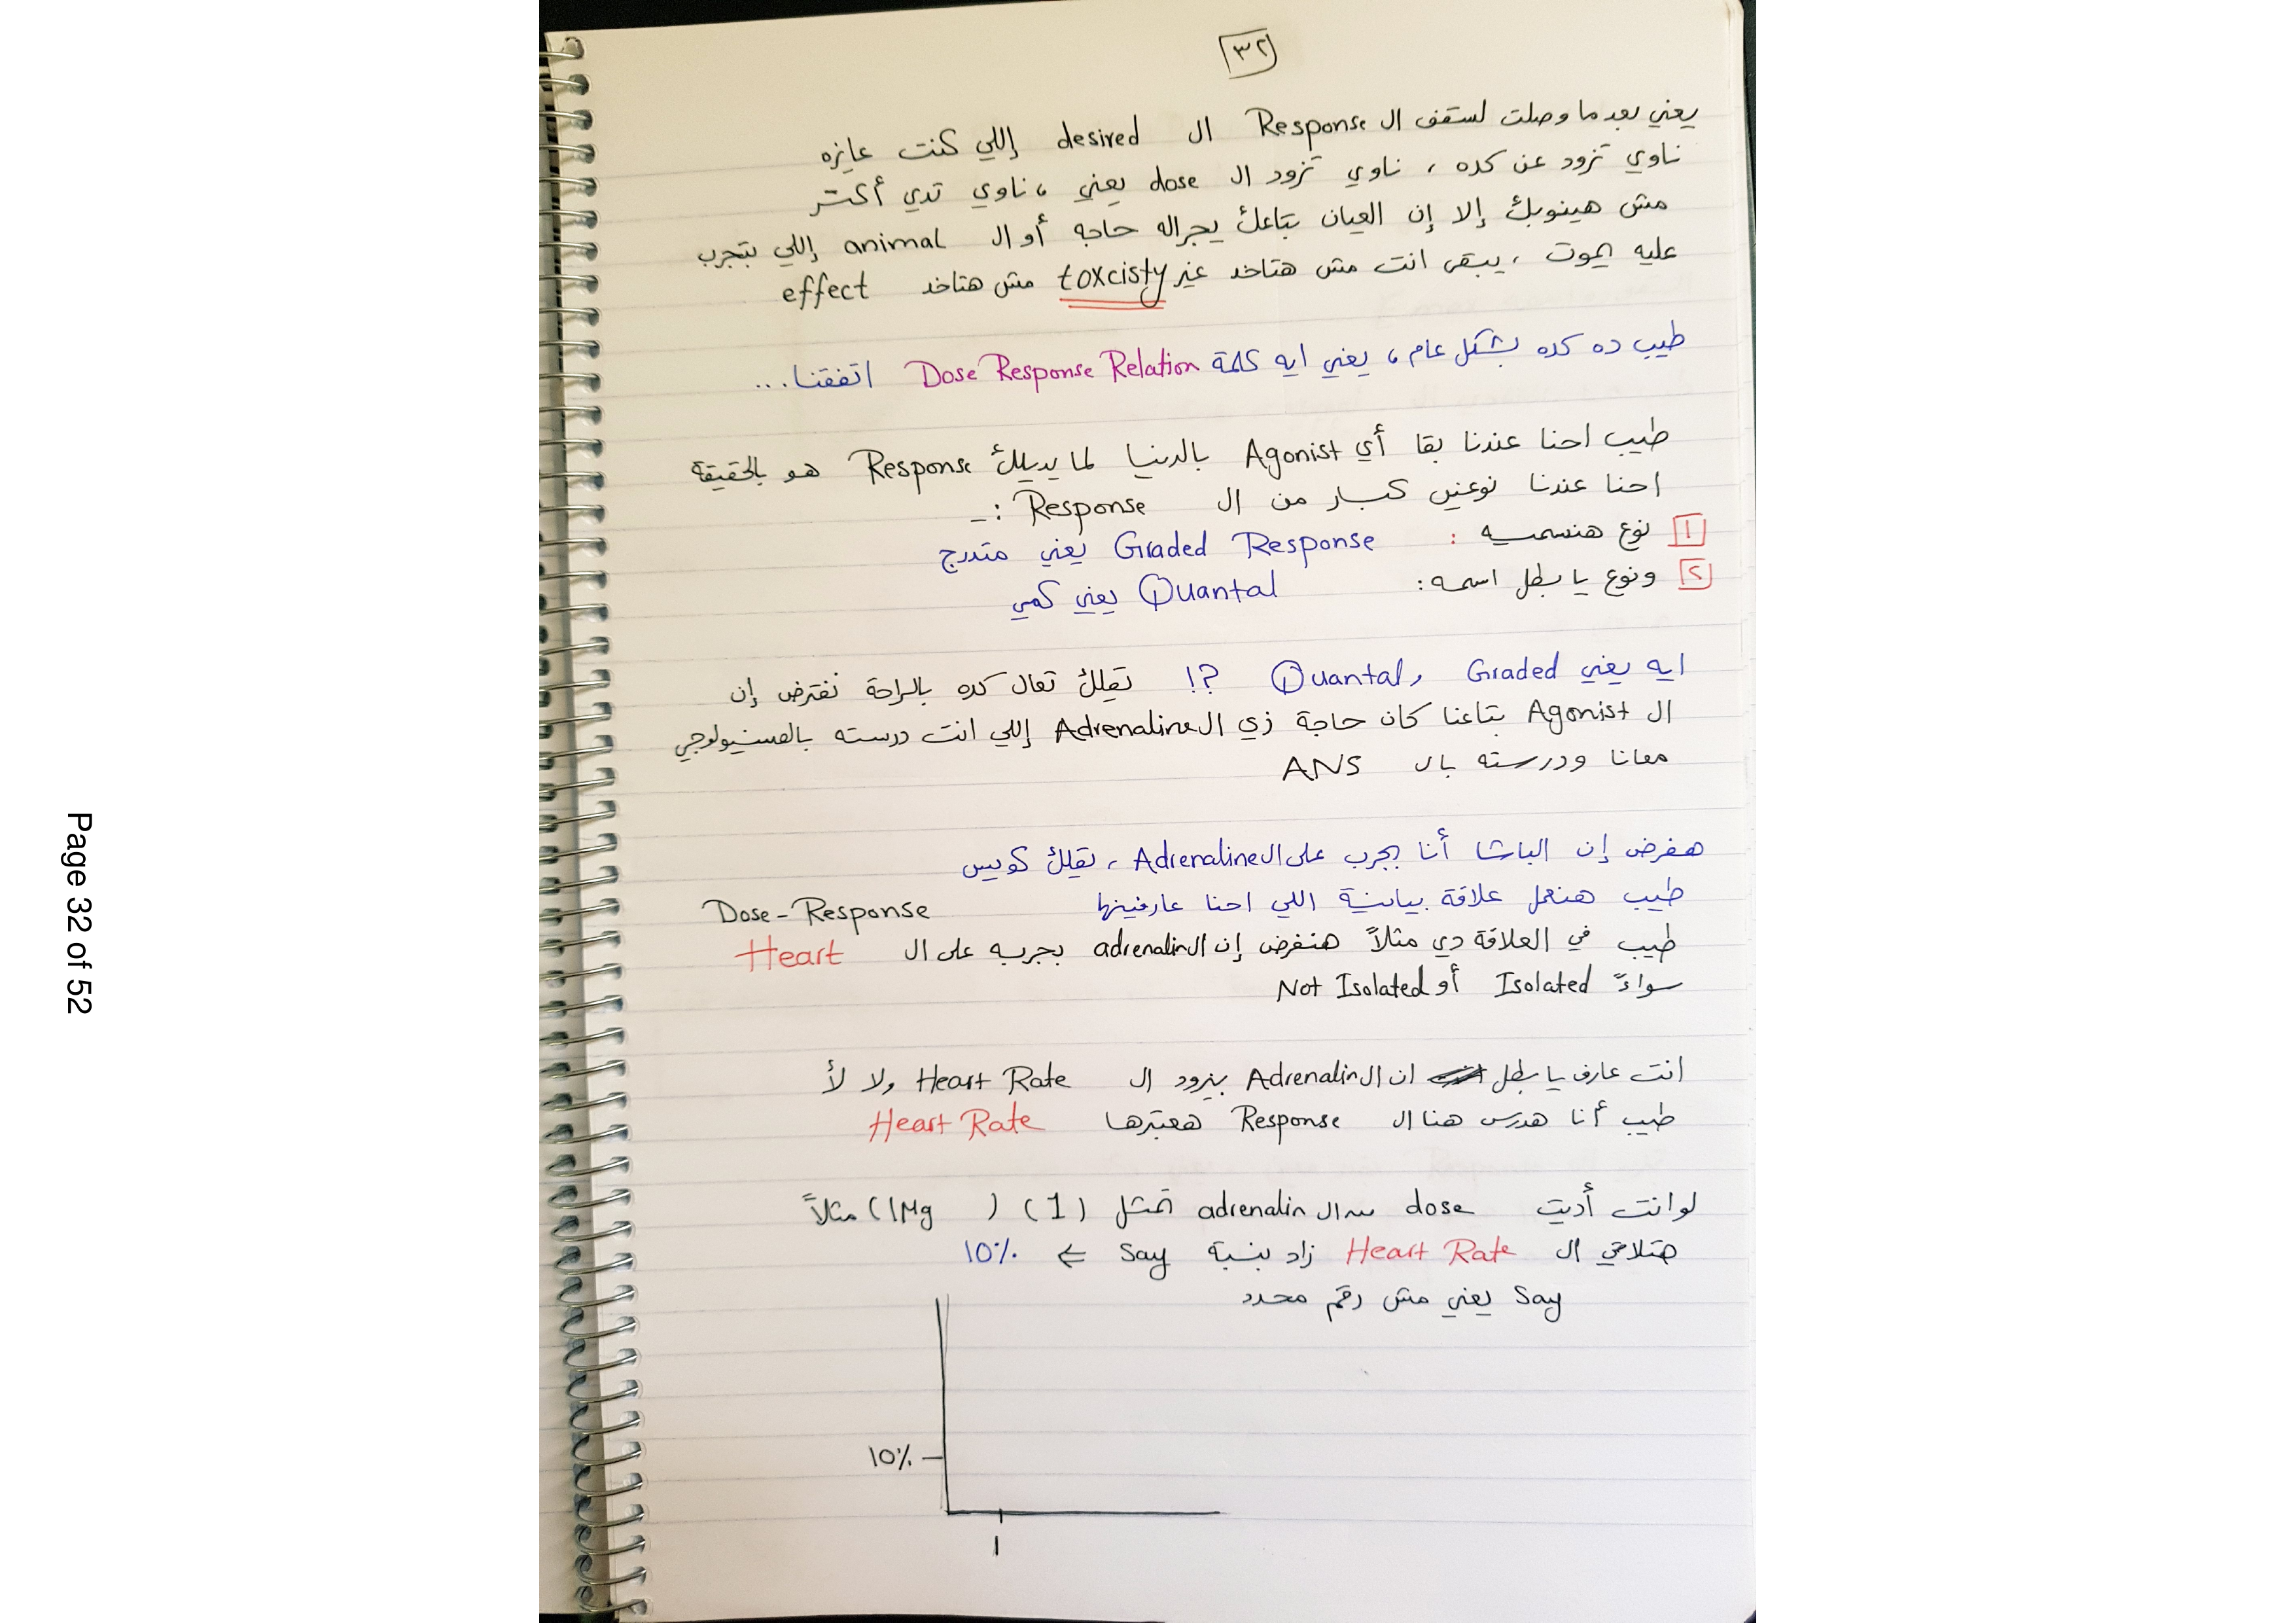 ٣٢
يعني بعد ما وصلت لسقف ال Response ال desired إللي كنت عايزه
ناوي تزود عن كده ، ناوي تزود ال dose يعني ، ناوي تدي أكتر
مش هينوبك إلا إن العيان بتاعك يجراله حاجه أو ال animal إللي بتجرب
عليه يموت ، يبقى انت مش هتاخد غير toxcisty مش هتاخد effect
طيب ده كده بشكل عام ، يعني ايه كلمة Dose Response Relation اتفقنا...
طيب احنا عندنا بقا أي Agonist بالدنيا لما يديلك Response هو بالحقيقة
احنا عندنا نوعين كبار من ال Response :-
1 نوع هنسميه : Graded Response يعني متدرج
٢ ونوع يا بطل اسمه: Quantal يعني كمي
ايه يعني Graded و Quantal ؟! تقلك تعال كده بالراحة نفترض إن
ال Agonist بتاعنا كان حاجة زي ال Adrenaline إللي انت درسته بالفسيولوجي
معانا ودرسته بال ANS
هفرض إن الباشا أنا بجرب على ال Adrenaline ، تقلك كويس
طيب هنعمل علاقة بيانية اللي احنا عارفينها Dose - Response
طيب في العلاقة دي مثلاً هنفرض إن ال adrenalin بجربه على ال Heart
سواءً Isolated أو Not Isolated
انت عارف يا بطل ان ال Adrenalin بيزود ال Heart Rate ولا لأ
طيب أنا هدرس هنا ال Response هعتبرها Heart Rate
لو انت أديت dose من ال adrenalin تمثل (1) (1Mg) مثلاً
هتلاقي ال Heart Rate زاد بنسبة say ⇐ 10%
say يعني مش رقم محدد
10%
1
Page 32 of 52